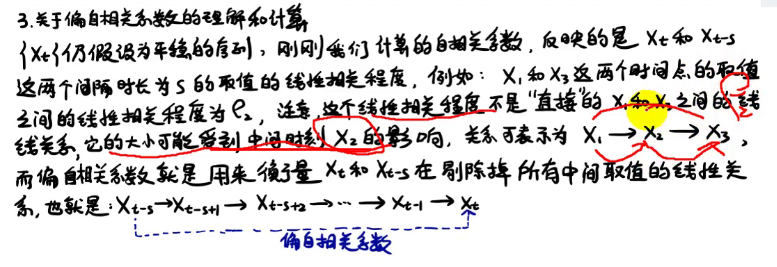 3.关于偏自相关系数的理解和计算
{Xt}仍假设为平稳的序列,刚刚我们计算的自相关系数,反映的是 Xt 和 Xt-s
这两个间隔时长为 s 的取值的线性相关程度,例如: X1 和 X3 这两个时间点的取值
之间的线性相关程度为 ρ2,注意,这个线性相关程度不是"直接"的 X1 和 X3 之间的线
线关系,它的大小可能受到中间时刻 X2 的影响,关系可表示为 X1 → X2 → X3,
而偏自相关系数就是用来衡量 Xt 和 Xt-s 在剔除掉所有中间取值的线性关
系,也就是: Xt-s→Xt-s+1 → Xt-s+2 →⋯ → Xt-1 → Xt
偏自相关系数